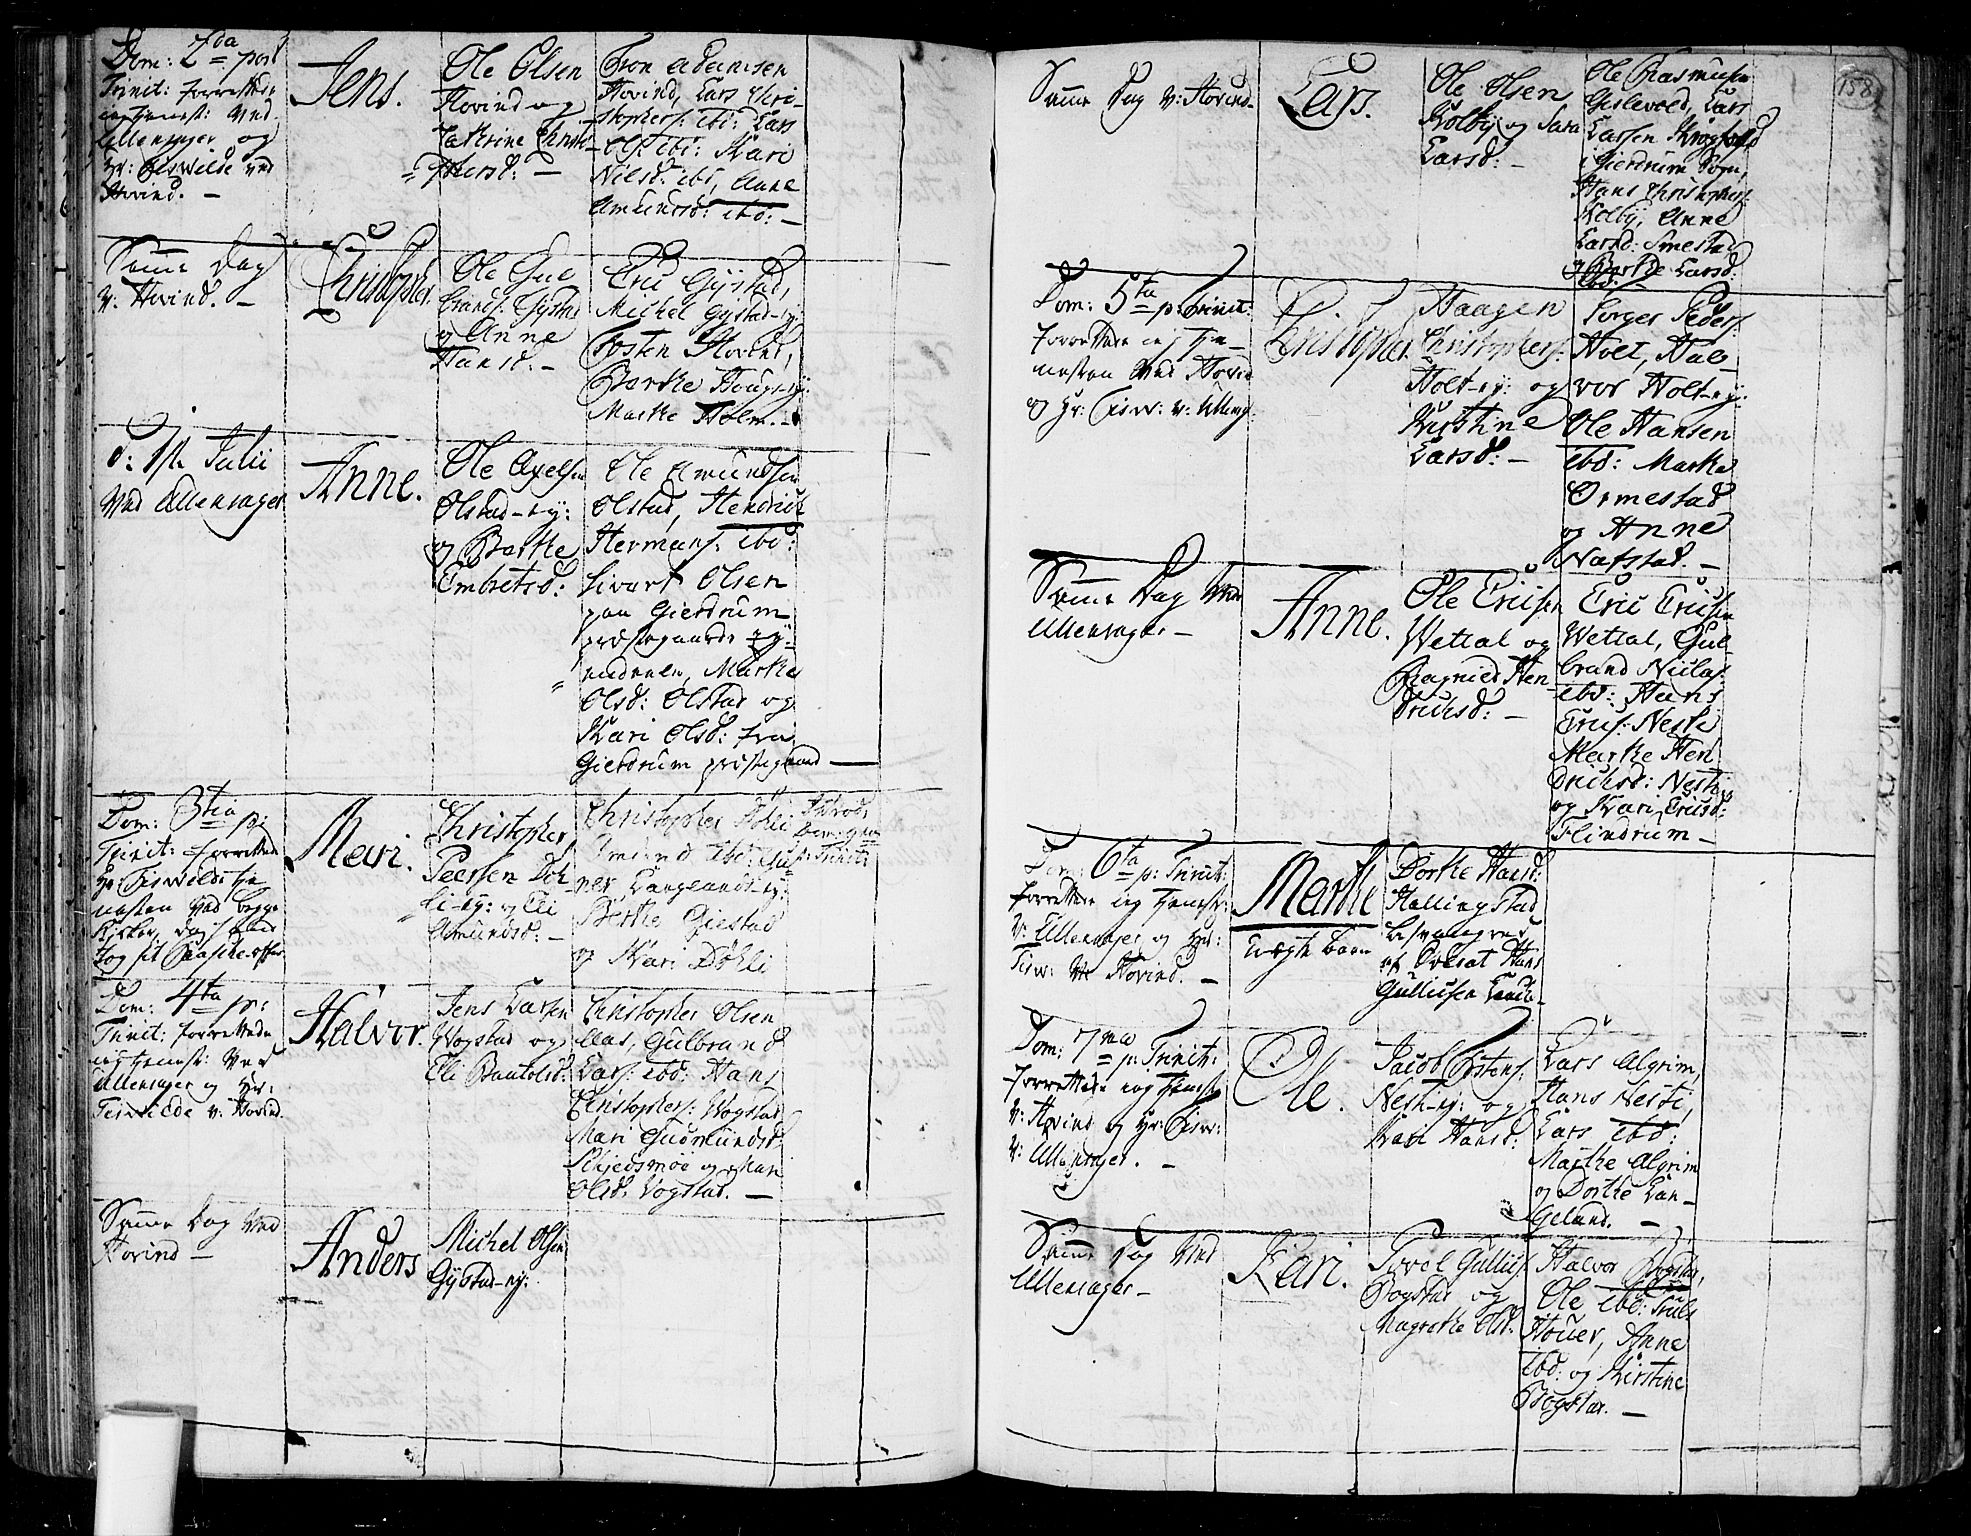 Dom: 2da post
Trinit: forrettede
ieg tienest: ved
Ullensager og
Hr: Tiswelde ved
Hovind. –
Jens.
Ole Olsen
Hovind og
Kathrine Christo-
phersd: –
Tron Adamsen
Hovind, Lars Chri-
stophers: ibd: Lars
Ols: ibd: Kari
Nilsd: ibd, Anne
Amundsd: ibd: –
Samme Dag
v. Hovind. –
Christopher.
Ole Gul
brands: Gystad
og Anne
Hansd: –
Eric Gystad,
Michel Gystad-ey:
Tosten Hovind,
Berthe Houg-ey:
Marthe Holm. –
d: 1st Julii
Ved Ullensager
Anne.
Ole Axelsen
Olstad-ey:
og Berthe
Embretsd:
Ole Amundsen
Olstad, Hendrich
Hermans: ibd:
Sivart Olsen
paa Gierdrum
præstegaards ey-
endeele, Marthe
Olsd: Olstad og
Kari Olsd: fra
Gierdrum præstegaard –
Dom: 3tia p:
Trinit: forrettede
Hr: Tiswelde tie
nesten ved begge
Kirker, da jeg
Mari.
Christopher
Peersen Døh-
li-ey: og Eli
Amundsd: –
Christopher Døhli
Amund ibd: Gun-
ner Laageland-ey:
Berthe Giestad
og Kari Døhli
Dom: 4ta p:
Trinit: forrettede
ieg tienest: ved
Ullensager og Hr:
Tiswelde v: Hovind.
Halvor.
Jens Larsen
Vogstad og
Eli Baardsd:
Christopher Olsen
Aas, Gulbrand
Lars: ibd: Hans
Christophers: Vogstad
Mari Gudmundsd:
Schiedsmoe og Mari
Olsd: Vogstad. –
Samme Dag ved
Hovind –
Anders
Michel Olsen
Gystad-ey:
158
Samme Dag v: Hovind.
Lars.
Ole Olsen
Kolbye og Sara
Larsd: –
Ole Rasmusen
Gislevold, Lars
Larsen Krogfoss
i Gierdrum Sogn,
Hans Christophers:
Kolby, Anne
Larsd: Smestad
og Berthe Larsd:
ibd:
Dom: 5ta p: Trinit:
forrettede ieg tie-
nesten ved Hovind
og Hr: Tisw: v: Ulleng.
Christopher.
Haagen
Christophers:
Holt-ey: og
Kirstine
Larsd: –
Torger Peders:
Holt, Hal-
vor Holt-ey:
Ole Hansen
ibd: Marthe
Ormestad
og Anne
Nafstad. –
Samme Dag ved
Ullensager –
Anne.
Ole Ericsen
Wettal og
Ragnild Hen-
drichsd: –
Eric Ericsen
Wettal, Gul-
brand Niclas:
ibd: Hans
Erics: Neste
Marthe Hen
drichsd: Neste
og Kari Ericsd:
Flindrum –
Dom: 6ta p: Trinit:
forrettede ieg tienest:
v: Ullensager og Hr:
Tisw: ved Hovind. –
Marthe
Uægte barn
Dorthe Hansd:
Hallingstad
besvangred
af Soldat Hans
Gulliksen
Dom: 7ma p: Trinit:
forrettede ieg tienest:
v: Hovind og Hr: Tisw:
v: Ullensager. –
Ole.
Jacob Tostens:
Nest-ey: og
Kari Hansd:
Lars Algrim,
Hans Neste,
Lars ibd:
Marthe Algrim
og Dorthe Lan-
geland. –
Samme Dag ved
Ullensager –
Kari.
Povel Gullics:
Bogstad og
Magrethe Olsd:
Halvor Bogstad,
Ole ibd: Truls
Houer, Anne
ibd: og Kirstine
Bogstad. –